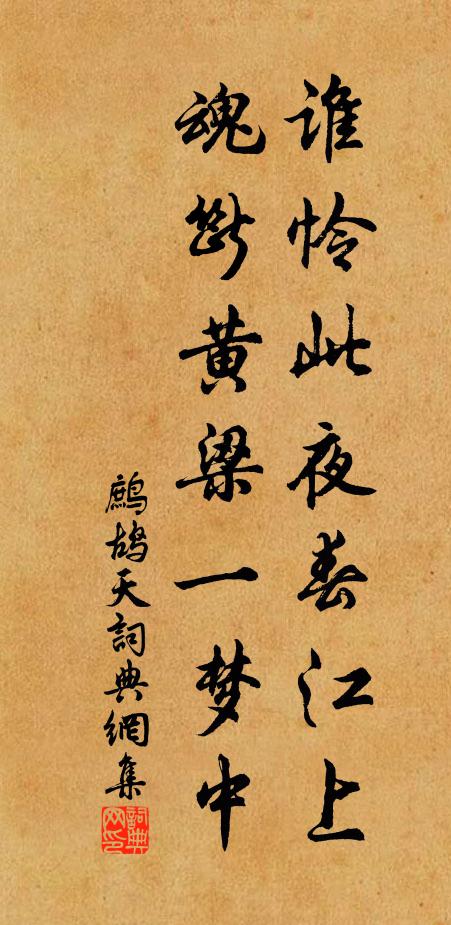 谁怜此夜春江上
魂断黄梁一梦中
鹧鸪天词典網集
詞典网印